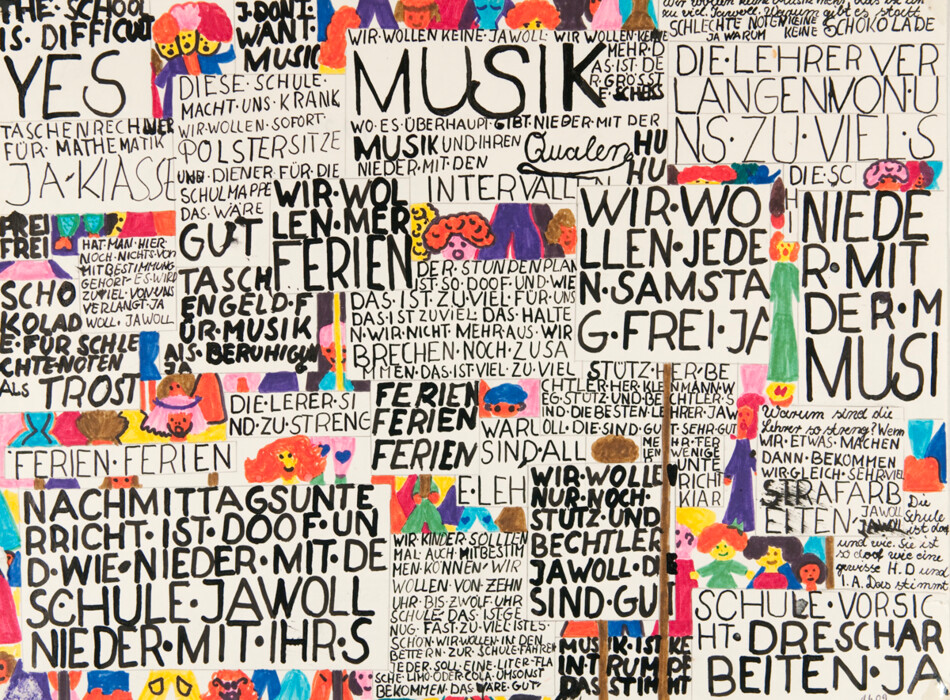 THE·SCHOOL
IS·DIFFICULT
YES
TASCHENRECHNER
FÜR·MATHEMATIK
JA·KLASSE
FREI
FREI
HAT·MAN·HIER·
NOCH·NICHTS·VON
MITBESTIMMUNG
GEHÖRT·ES·WIRD
ZUVIEL·VON·UNS
VERLANGT·JA
WOLL·JAWOLL
SCHO
KOLAD
E·FÜR·SCHLE
CHTE·NOTEN
ALS TROST
J·DONT·
WANT·
MUSIC
DIESE·SCHULE·
MACHT·UNS·KRANK
WIR·WOLLEN·SOFORT·
POLSTERSITZE
UND·DIENER·FÜR·DIE
SCHULMAPPE
DAS·WÄRE
GUT
TASCH
ENGELD·F
ÜR·MUSIK
ALS·BERUHIGUN
WIR·WOL
LEN·MER
FERIEN
WIR·WOLLEN·KEINE·JAWOLL·WIR·WOLLEN·KEINE
MUSIK
MEHR·D
AS·IST·DE
R·GRÖSST
E·
WO·ES·ÜBERHAUPT·GIBT·NIEDER·MIT·DER
MUSIK·UND·IHREN Qualen HU
NIEDER·MIT·DEN HU
INTERVALLEN
SCHLECHTE NOTEN KEINE SCHOKOLADE
JA WARUM KEINE
DIE·LEHRER·VER
LANGEN·VON·U
NS·ZU·VIEL·S
DIE·SC
WIR·WO
LLEN·JEDE
N·SAMSTA
G·FREI·JA
NIEDE
R·MIT
DER·M
MUSI
DER·STUNDENPLAN
IST·SO·DOOF·UND·WIE
DAS·IST·ZU·VIEL·FÜR·UNS
DAS·IST·ZUVIEL·DAS·HALTE
N·WIR·NICHT·MEHR·AUS·WIR
BRECHEN·NOCH·ZUSA
MMEN·DAS·IST·VIEL·ZU·VIEL
DIE·LERER·SI
ND·ZU·STRENG
FERIEN
FERIEN
FERIEN
FERIEN·FERIEN
STÜTZ·HER·BE
CHTLER·HER·KLEINMANN·W
EG·STÜTZ·UND·BECHTLER·S
IND·DIE·BESTEN·LEHRER·JAW
OLL·DIE·SIND·GUT·SEHR·GUT
WARU
SIND·ALL
E·LEH
ME
HR·FER
IEN
WENIGE
UNTE
RICHT
KLAR
NACHMITTAGSUNTE
RRICHT·IST·DOOF·UN
D·WIE·NIEDER·MIT·DE
SCHULE·JAWOLL
NIEDER·MIT·IHR·S
WIR·KINDER·SOLLTEN
MAL·AUCH·MITBESTIM
MEN·KÖNNEN·WIR
WOLLEN·VON·ZEHN
UHR·BIS·ZWÖLF·UHR
SCHULE·DAS·IST·GE
NUG·FAST·ZU·VIEL·IST·ES·
SCHON·WIR·WOLLEN·IN·DEN
BETTERN·ZUR·SCHULE·FAHREN
JEDER·SOLL·EINE·LITER·FLA
SCHE·LIMO·ODER·COLA·UMSONST
BEKOMMEN·DAS·WÄRE·GUT·
WIR·WOLLE
NUR·NOCH·
STÜTZ·UND·
BECHTLER
JAWOLL·DI
SIND·GU
MUSIK·IST·KE
IN·TRUMPF
DAS·STIMMT
Warum sind die
Lehrer so streng? Wenn
WIR·ETWAS·MACHEN
DANN·BEKOMMEN
WIR·GLEICH·SEHR·VIEL
STRAFARB
EITEN·JAWOLL
JAWOLL
Die
Schule
ist doo
und wie. Sie ist
so doof wie eine
gewisse H.D und
I.A. Das stimmt
SCHULE·VORSIC
HT·DRESCHAR
BEITEN·JA